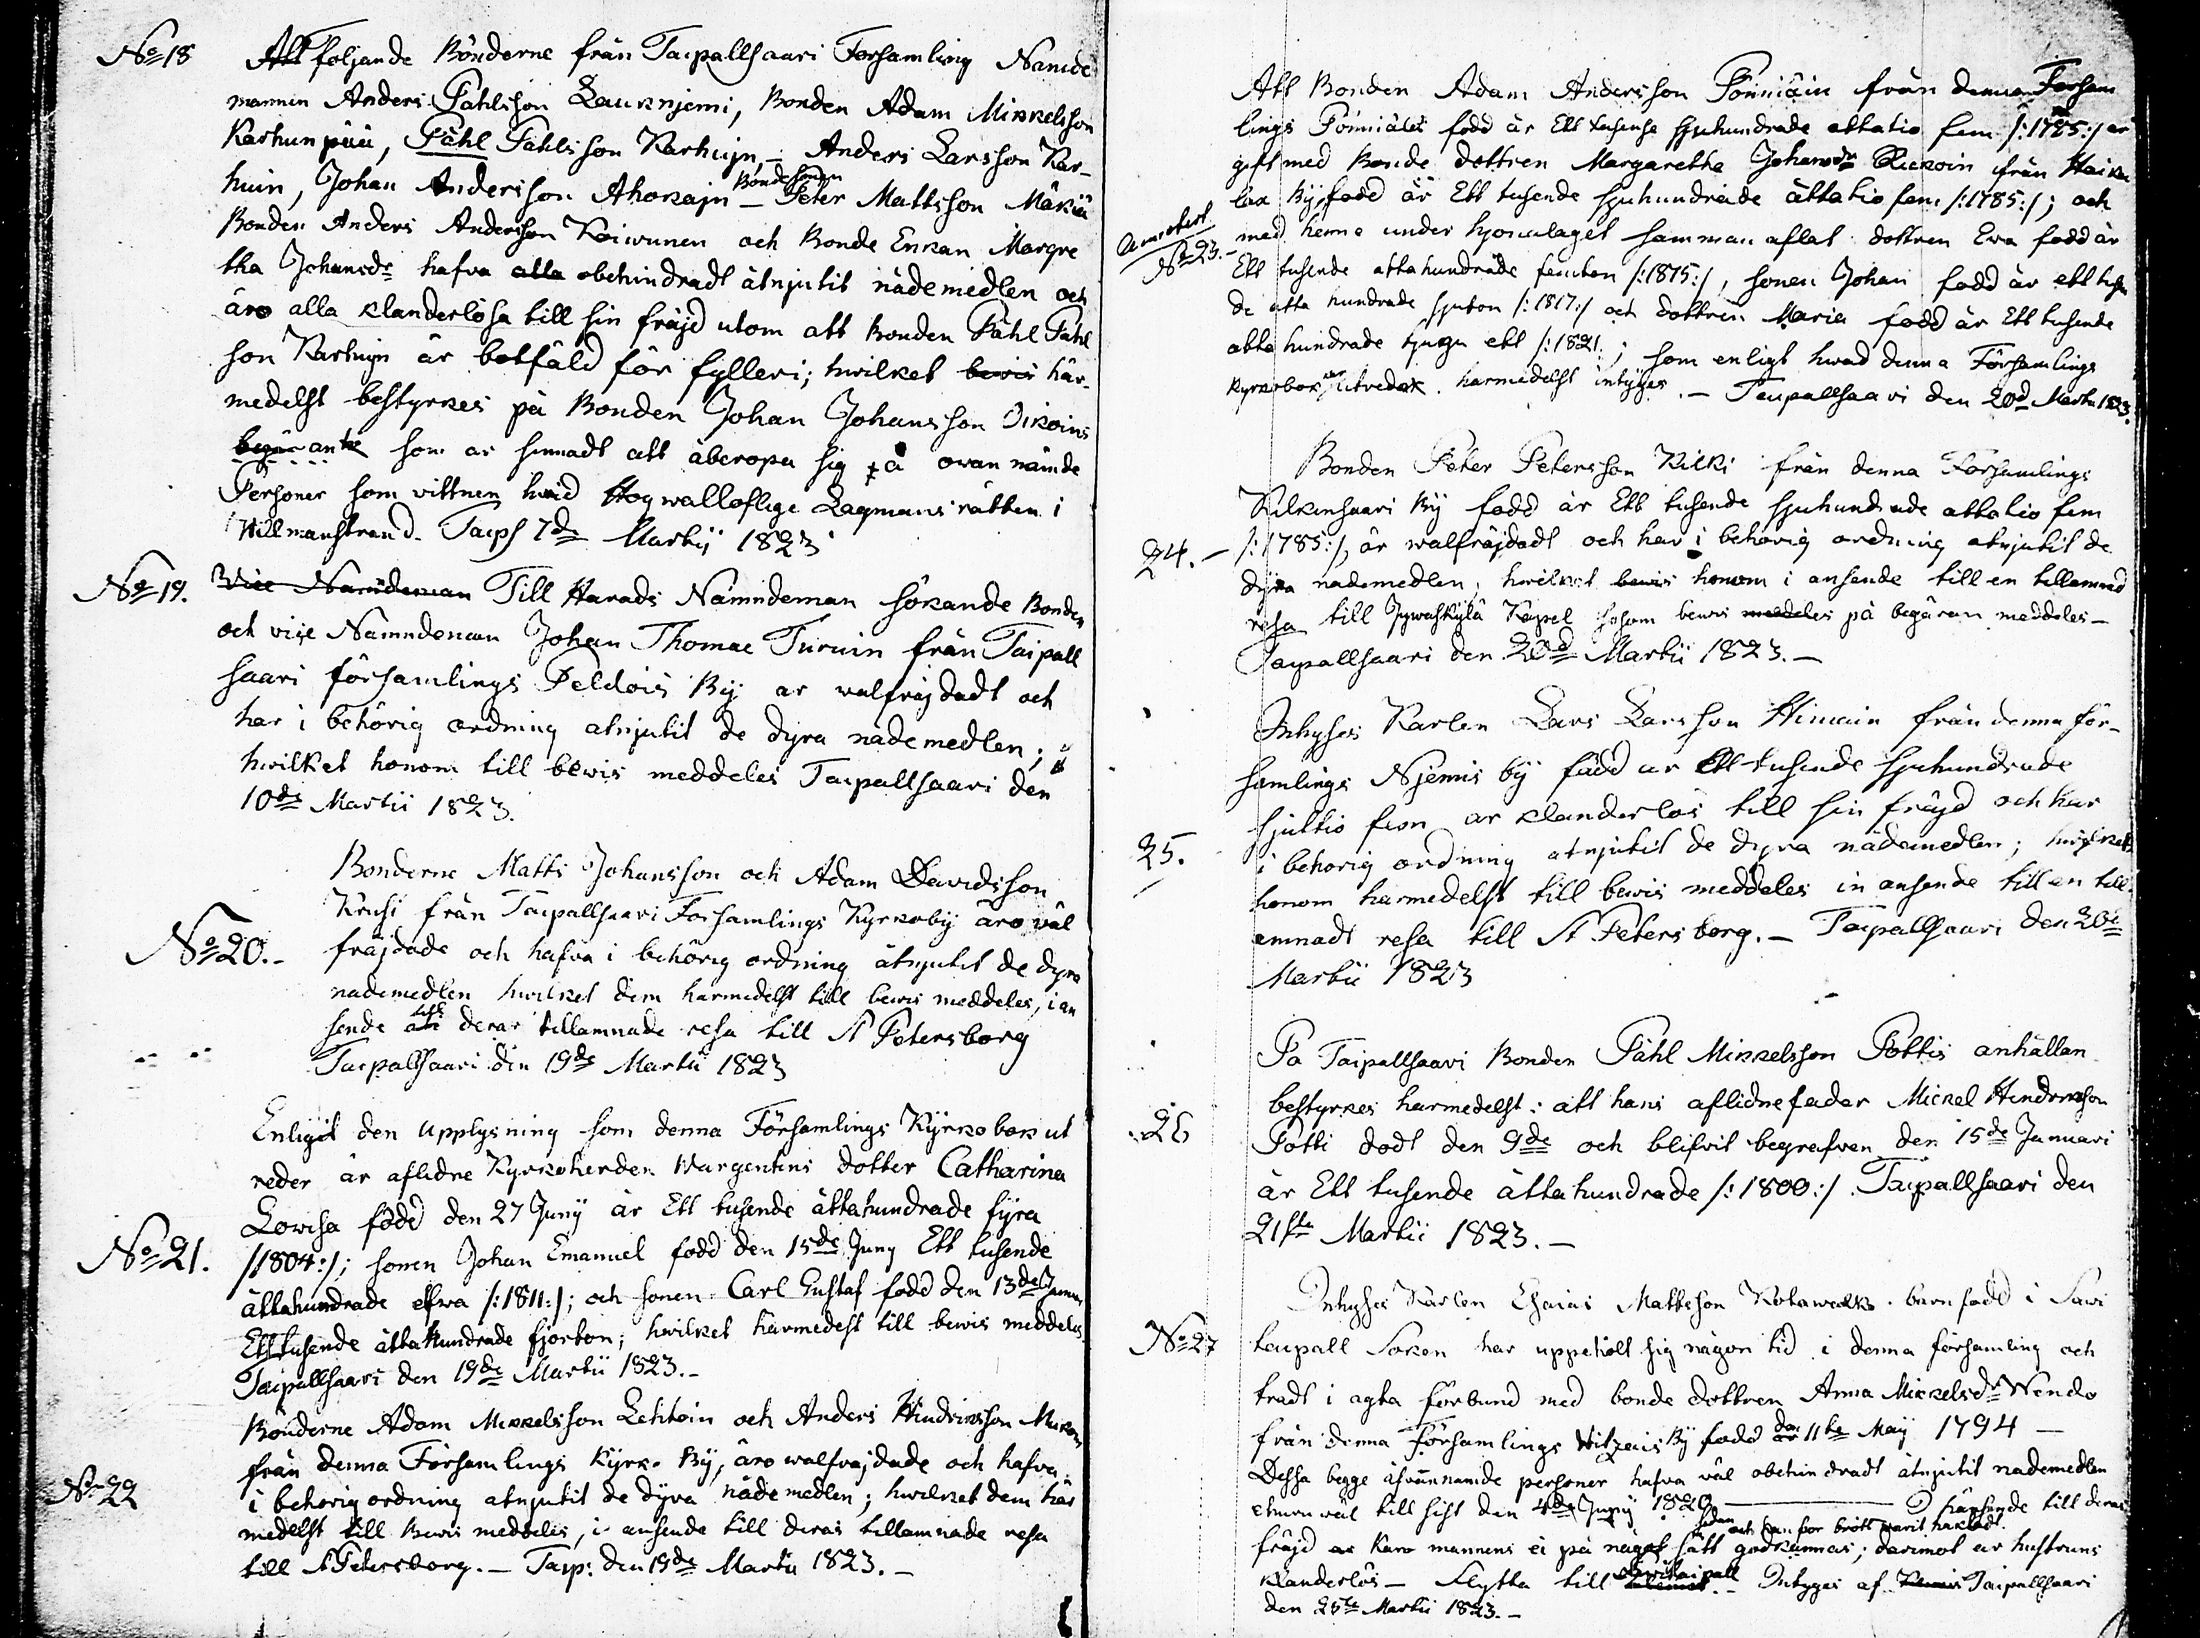 No 18 Att foljande Bönderne från Taipallsaari Forsamling Namde
mannen Anders Påhlsson Lauknjemi, Bonden Adam Mikkelsson
Karhunpää, Påhl Påhlsson Karhujn, – Anders Larsson Kar-
huin, Johan Andersson Ahokajn – Bonde sonen Peter Mattsson Mäkiä
Bonden Anders Andersson Koiwunen och Bonde Enkan Margre
tha Johansdr hafva alla obehindradt åtnjutit nådemedlen och
äro alla klanderlösa till sin fräjd utom att Bonden Påhl Påhl
son Karhujn är botfäld för fylleri; hwilket bewis här-
medelst bestyrkes på Bonden Johan Johansson Oikoins
begäran som ar sinnadt att åberopa sig på ovan nämde
Personer som vittnen hwid Hogwalloflige Lagmansrätten i
Willmanstrand. Taips 7de Martij 1823
No 19. Vice Namndeman Till Harads Nämndeman sökande Bonden
och vice Nämndeman Johan Thomae Turuin från Taipall
saari församlings Peldois By ar walfräjdadt och
har i behörig ordning atnjutit de dyra nademedlen;
hwilket honom till bewis meddeles Taipallsaari den
10de Martii 1823.
Bonderne Matts Johansson och Adam Davidsson
Krusi från Taipallsaari Forsamlings Kyrkoby äro väl
No 20.- fräjdade och hafva i behörig ordning åtnjutit de dyra
nademedlen hwilket dem harmedelst till bewis meddeles, i an
sende till deras tillamnade resa till St Petersborg
Taipallsaari den 19de Martii 1823
Enligit den upplysning som denna Församlings Kyrkobok ut
reder är aflidne Kyrkoherden Wargentins dotter Catharina
Lowisa född den 27 Juny år Ett tusende åttahundrade fyra
No 21. /:1804:/; sonen Johan Emanuel född den 15de Juny Ett tusende
åttahundrade elfwa /:1811:/; och sonen Carl Gustaf född den 13de Januar
Ett tusende åttahundrade fjorton; hwilket härmedelst till bewis meddeles.
Taipallsaari den 19de Martii 1823.-
Bönderne Adam Mikkelsson Lehtoin och Anders Hindriksson
från denna Församlings Kyrko By, äro walfrajdade och hafva
No 22 i behorig ordning atnjutit de dyra nådemedlen; hwilket dem här
medelst till Bewis meddeles, i ansende till deras tillamnade resa
till St Petersborg. – Taip: den 19de Martii 1823. –
Att Bonden Adam Andersson Pönniäin från denna Forsam
lings Pönniälä född år Ett tusende sjuhundrade attatio fem /:1785:/ är
gift med Bonde dottren Margaretha Johansdr från Haika
lax By, född år Ett tusende sjuhundrade åttatio fem /:1785:/; och
No 23.- med henne under hjonelaget samman aflat dottren Eva född år
Ett tusende attahundrade femton /:1815:/, sonen Johan född år ett tusen
de atta hundrade sjuton /:1817:/ och dottren Maria född år Ett tusende
atta hundrade tjugu ett /:1821:/; som enligt hwad denna Församlings
Kyrkobok utvedar. harmedelst intyges. – Taipallsaari den 20d Martii 1823.
Bonden Peter Petersson Kilki från denna Församlings
Kilkinsaari By född år Ett tusende sjuhundrade attatio fem
24.- /:1785:/, är walfräjdadt och har i behörig ordning atnjutit de
dyra nademedlen; hwilket bewis honom i ansende till en tillamnad
resa till Jywaskylä Kapel sosom bewis meddeles på begäran meddeles –
Taipallsaari den 20d Martii 1823. –
Inhyses Karlen Lars Larsson Himain från denna för-
samlings Njemis by född ar Ett tusende sjuhundrade
sjuttio fem ar klanderlös till sin fräjd och har
25. i behorig ordning atnjutit de dyra nådemedlen; hwilket
honom harmedelst till bewis meddeles in ansende till en till-
amnadt resa till St Petersborg. – Taipallsaari den 20de
Martii 1823
Pa Taipallsaari Bonden Påhl Mikkelsson Pottis anhållan
bestyrkes harmedelst: att hans aflidne fader Mickel Hendriksson
26 Potti dodt den 9de och blifvit begrafven den 15de Januari
år Ett tusende åttahundrade /:1800:/. Taipallsaari den
21sta Martii 1823. –
Inhyses Karlen Esaias Mattsson Kotawalko. barn född i Sawi
No 27 taipall Soken har uppehålt sig någon tid i denna församling och
tradt i agta förbund med bonde dottren Anna Mickelsdr Wendo
från denna Församlings By född den 11te Maij 1794 –
Dessa begge åfvannamde personer hafva väl obehindradt åtnjutit nademedlen
ehuru väl till sist den 4de Junij 1820 hänsende till deras
sedan och han for brott warit häktadt.
fräjd ar Karo mannens ei på något sätt godkannas; daremot ar hustruns
klanderlös – Flytta till Sawitaipall. – Intyges af Taipallsaari
den 25te Martii 1823. –